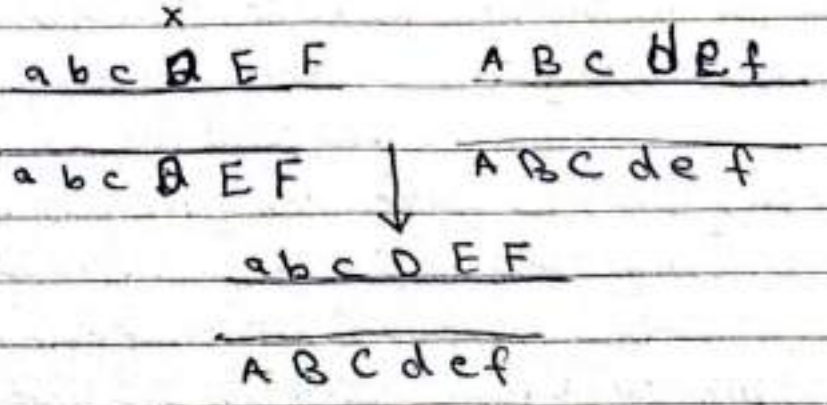 x
a b c D E F A B C d e f
a b c D E F A B C d e f
a b c D E F
A B C d e f